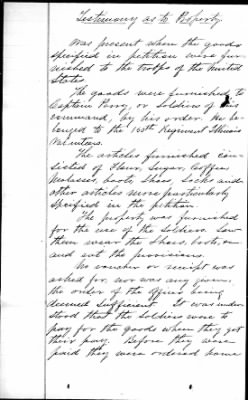 Testimony as to Property.
Was present when the goods
specified in petition were fur-
nished to the troops of the United
States.
The goods were furnished to
Captain Perry, or Soldiers of his
command, by his order. He be-
longed to the 103rd Regiment Illinois
Volunteers.
The articles furnished con-
sisted of Flour, Sugar, Coffee,
molasses, boots, Shoes, Socks and
other articles more particularly
specified in the petition.
The property was furnished
for the use of the Soldiers. Saw
them wear the Shoes, boots, &c
and eat the provisions.
No voucher or receipt was
asked for, nor was any given,
the order of the officer being
deemed sufficient. It was under-
stood that the Soldiers were to
pay for the goods when they got
their pay. Before they were
paid they were ordered home